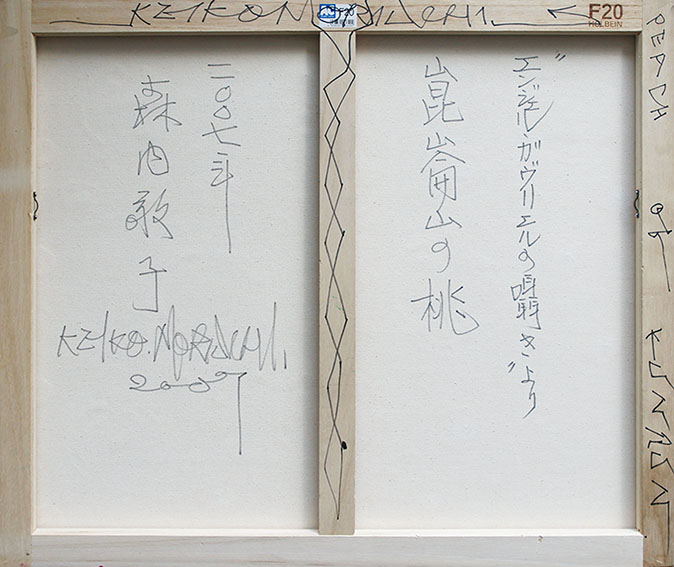 KEIKO MORIUCHI.
F20
HOLBEIN
PEACH OF KUNRUN
“エンジェル・ガヴリエルの囁き”より
崑崙山の桃
二〇〇七年
森内敬子
KEIKO.MORIUCHI.
2007